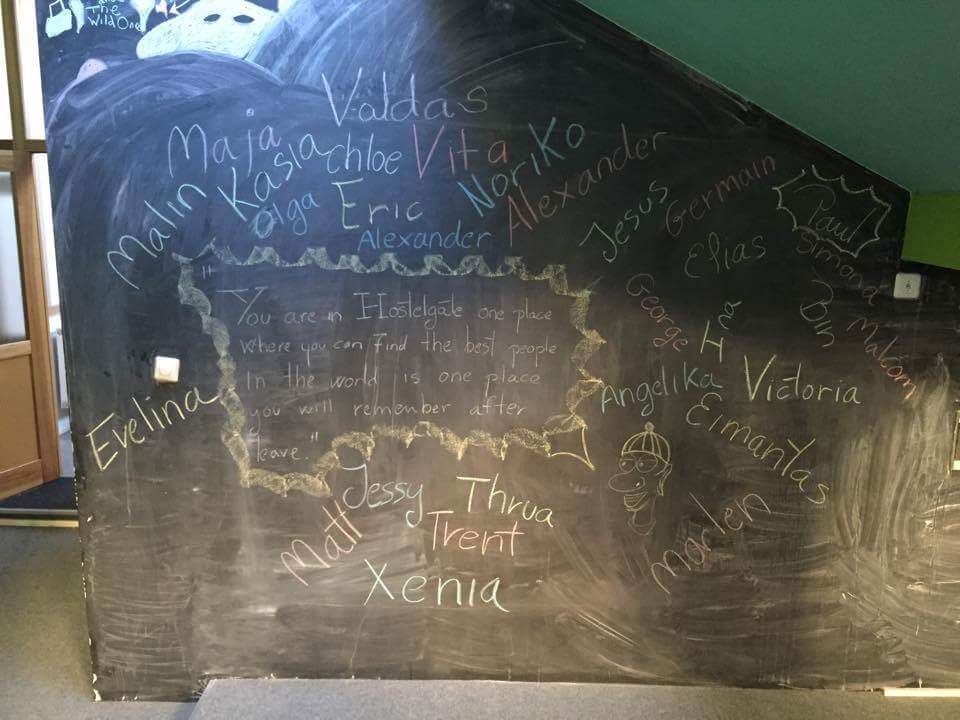 The
Wild One
Valdas
Maja
Kasia
chloe
Vita
NoriKo
Alexander
Malin
Olga
Eric
Alexander
Jesus
Germain
Paul
Elias
Simona
"You are in Hostelgate one place
where you can find the best people
In the world is one place
you will remember after
leave."
George
Bin
Malcom
Angelika
Victoria
Eimantas
Evelina
Jessy
Thrua
Matt
Trent
Marlen
Xenia